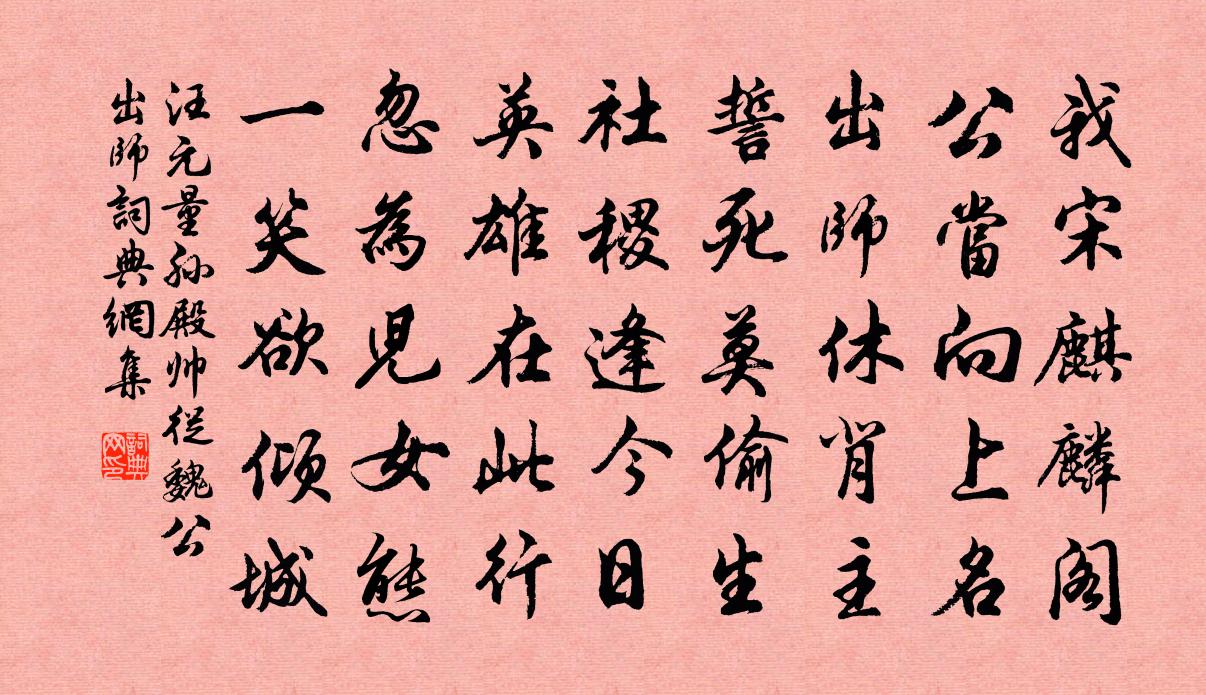 我宋麒麟阁
公當向上名
出師休肖主
誓死莫偷生
社稷逢今日
英雄在此行
忽為児女態
一笑欲傾城
汪元量孙殿帅從魏公
出師詞典網集
詞典网印